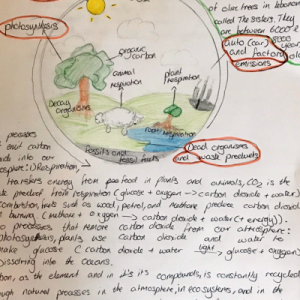 of olive trees in lebanon
called The sisters. They
are between 6000 &
years
photosynthesis
auto (car)
and factory
emissions
organic
carbon
animal
respiration
plant
respiration
Decay
organisms
root respiration
fossils and
fossil fuels
Dead organisms
and waste products
processes
carbon
into our
: Respiration,
transfers energy from food in plants and animals, CO2 is the
product from respiration (glucose + oxygen → carbon dioxide + water)
combustion, fuels such as wood, petrol, and methane produce carbon dioxide
burning (methane + oxygen → carbon dioxide + water (+ energy)).
processes that remove carbon dioxide from our atmosphere:
photosynthesis, plants use carbon dioxide and water to
make glucose (carbon dioxide + water light → glucose + oxygen)
Dissolving into the oceans.
as the element and in it's compounds, is constantly recycled
through natural processes in the atmosphere, in ecosystems, and in